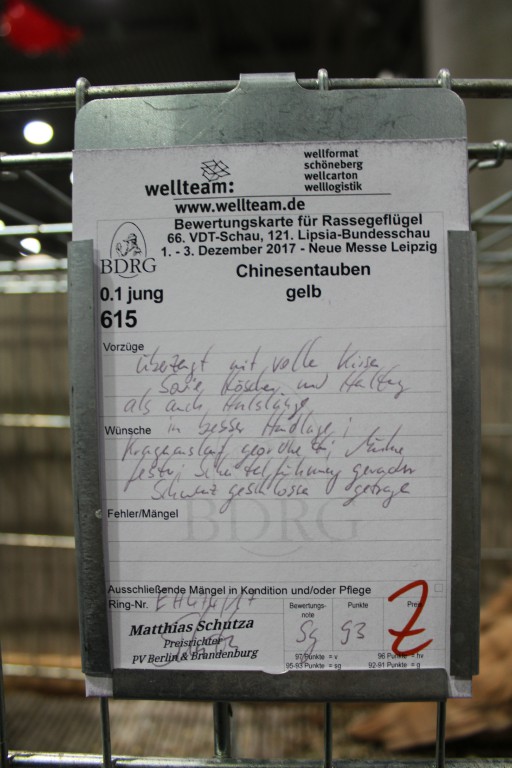 wellteam:
wellformat
schöneberg
wellcarton
welllogistik
www.wellteam.de
BDRG
Bewertungskarte für Rassegeflügel
66. VDT-Schau, 121. Lipsia-Bundesschau
1. - 3. Dezember 2017 - Neue Messe Leipzig
Chinesentauben
0.1 jung gelb
615
Vorzüge
überzeugt mit volle Kissen
sowie Höschen und Haltung
als auch Halslänge
Wünsche in besser Handlage;
Kragenauslauf
geschlossen
Fehler/Mängel
BDRG
Ausschließende Mängel in Kondition und/oder Pflege
Ring-Nr.
Matthias Schutza
Preisrichter
PV Berlin & Brandenburg
Bewertungs-
note
Sg
Punkte
93
Preis
Z
97 Punkte = v 96 Punkte = hv
95-93 Punkte = sg 92-91 Punkte = g